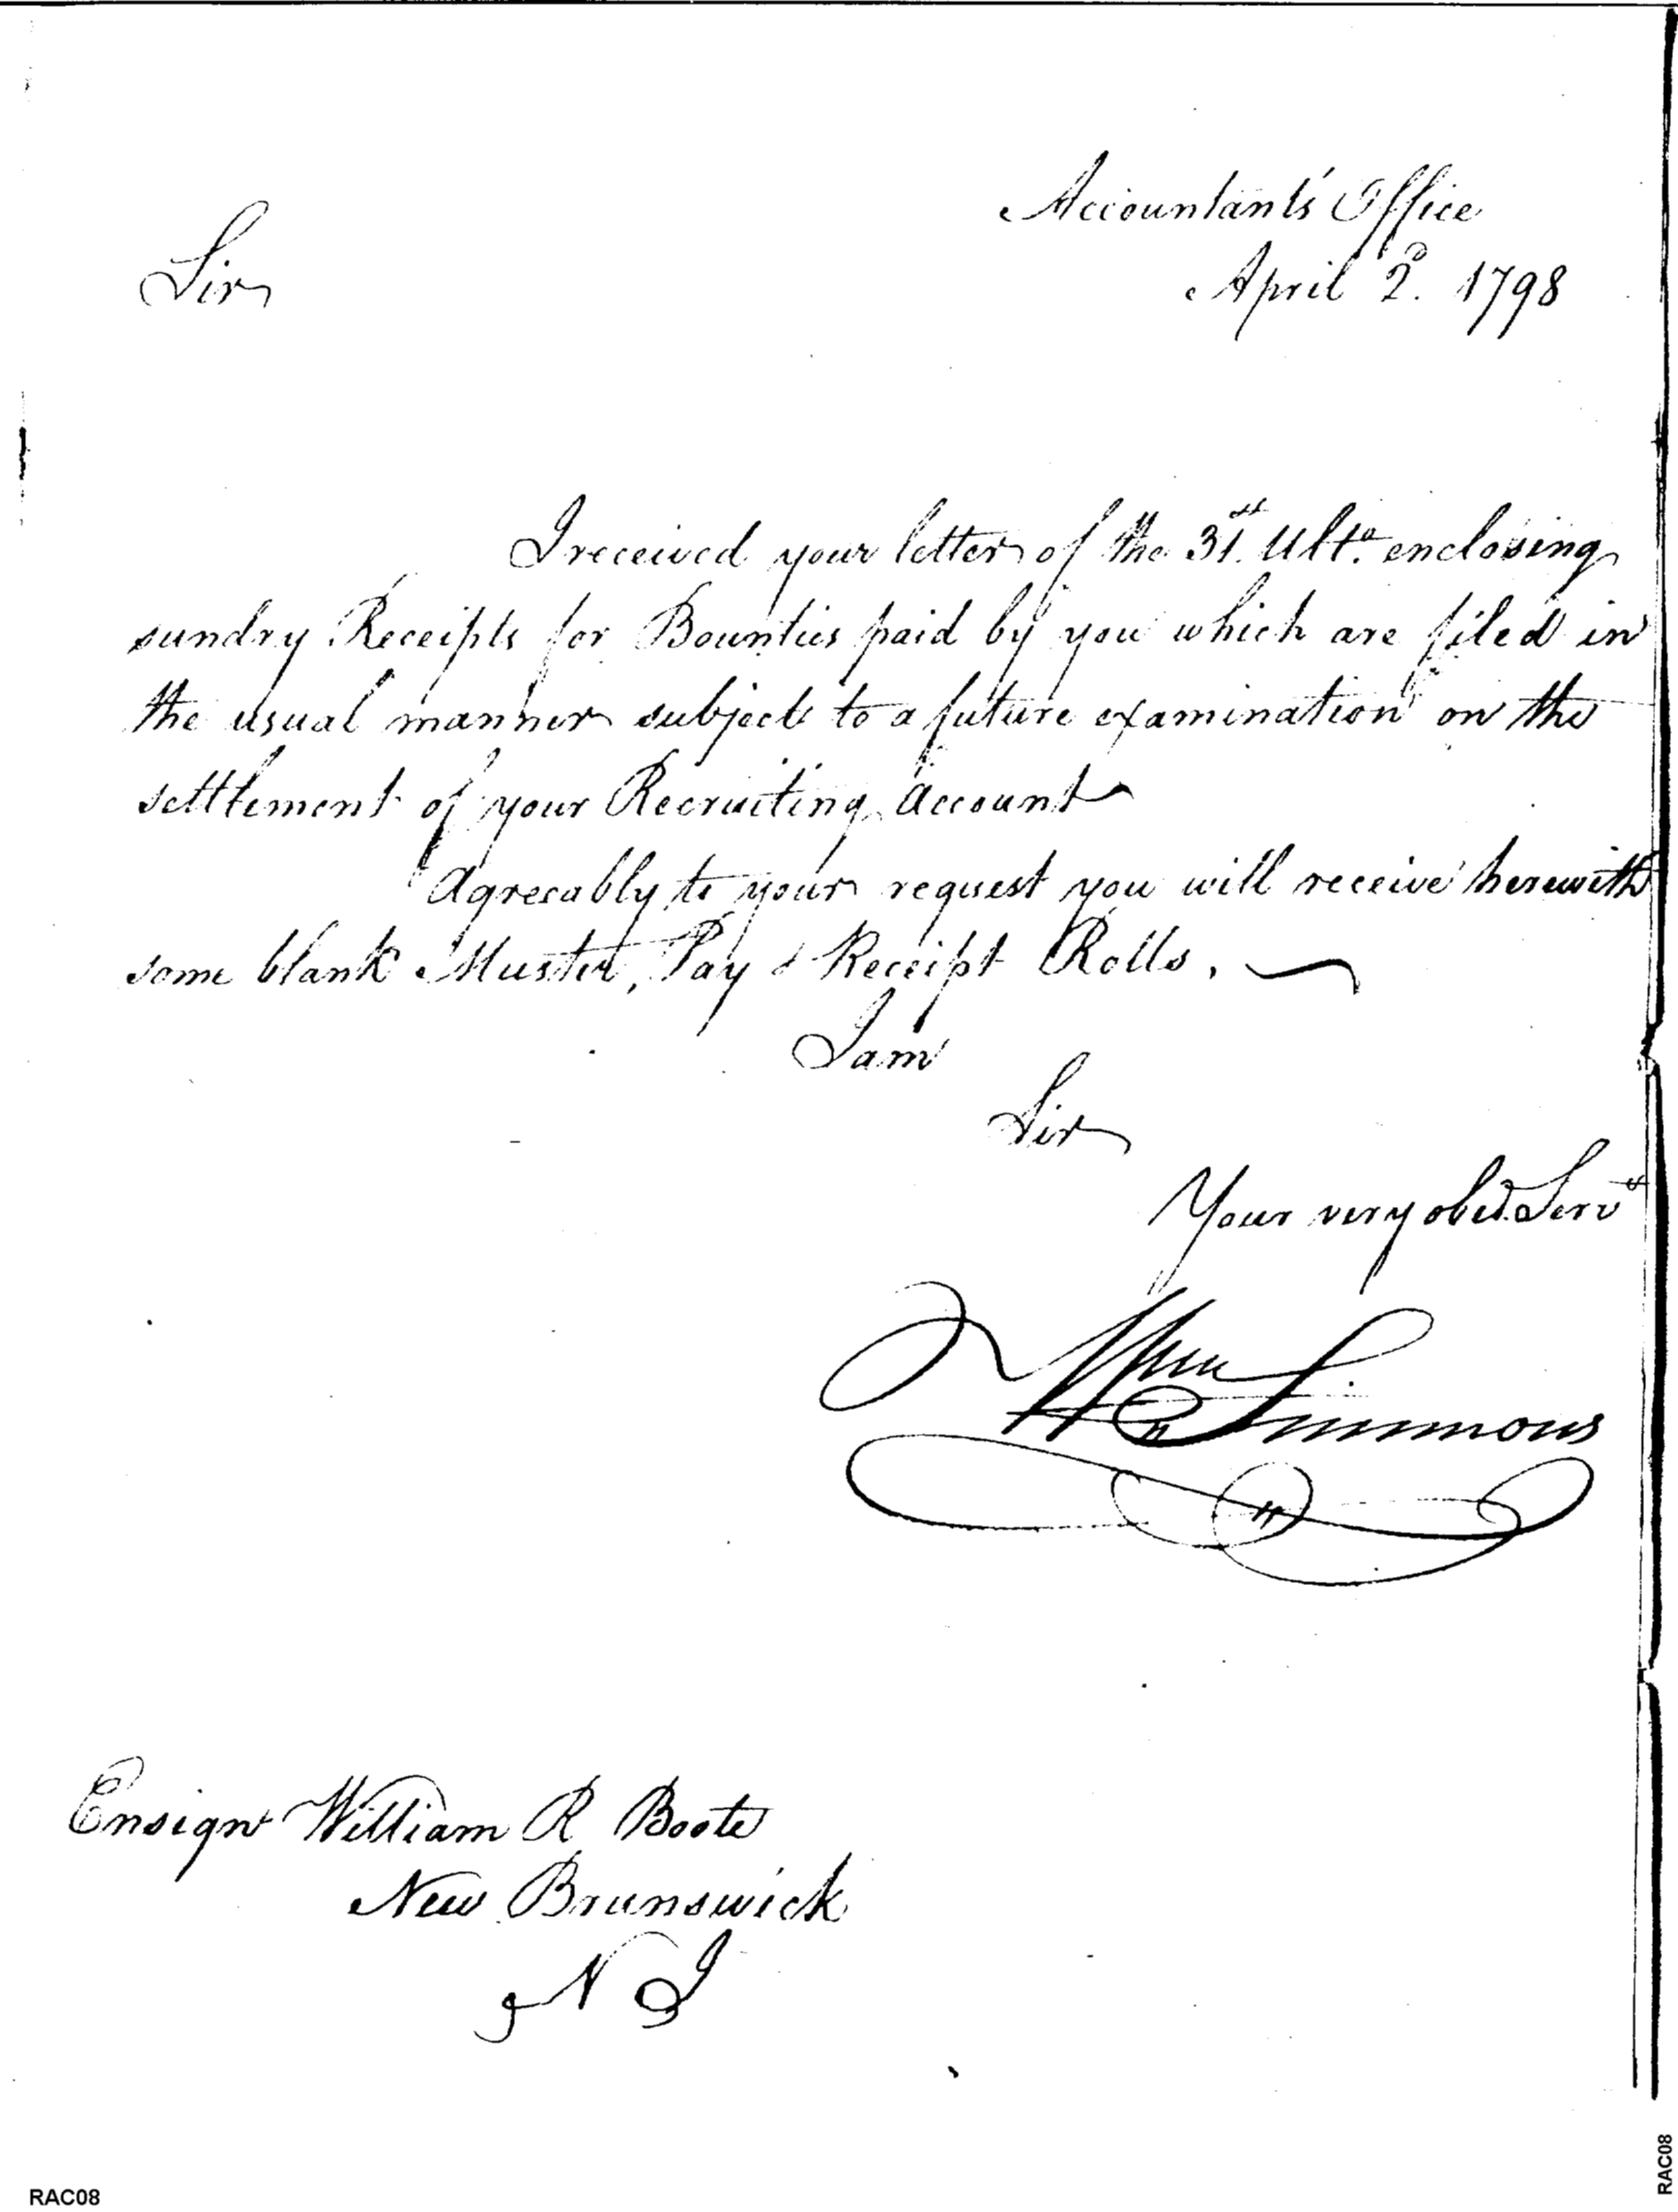 Accountant's Office
April 2d. 1798
Sir
I received your letter of the 31st. Ulto. enclosing
sundry Receipts for Bounties paid by you which are filed in
the usual manner subject to a future examination on the
settlement of your Recruiting Account
Agreeably to your request you will receive herewith
some blank Muster, Pay & Receipt Rolls.
I am
Sir
Your very obed. Servt
Wm Simmons
Ensign William R Boote
New Brunswick
N J
RAC08
RAC08